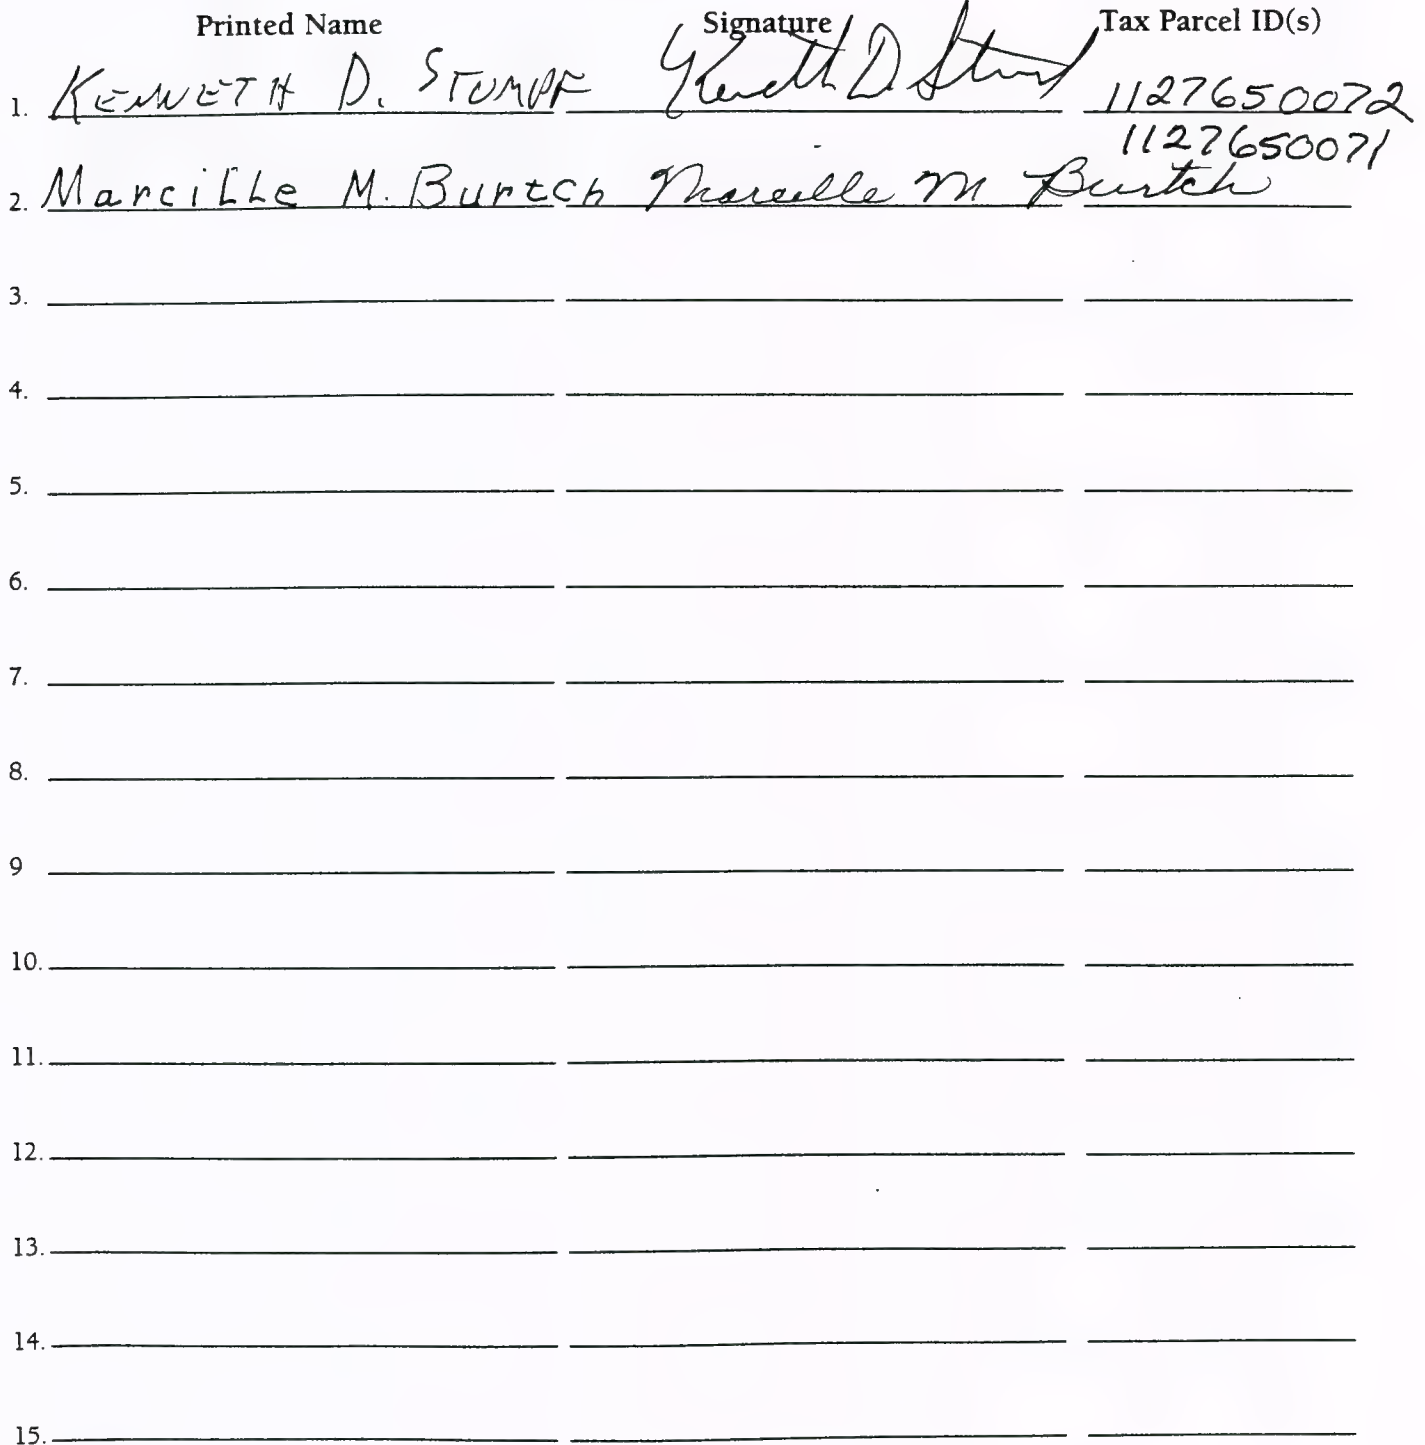 Printed Name Signature Tax Parcel ID(s)
1. KENNETH D. STUMPF Kenneth D Stumpf 1127650072
1127650071
2. MarciLLe M. Burtch Marcille M Burtch
3.
4.
5.
6.
7.
8.
9
10.
11.
12.
13.
14.
15.